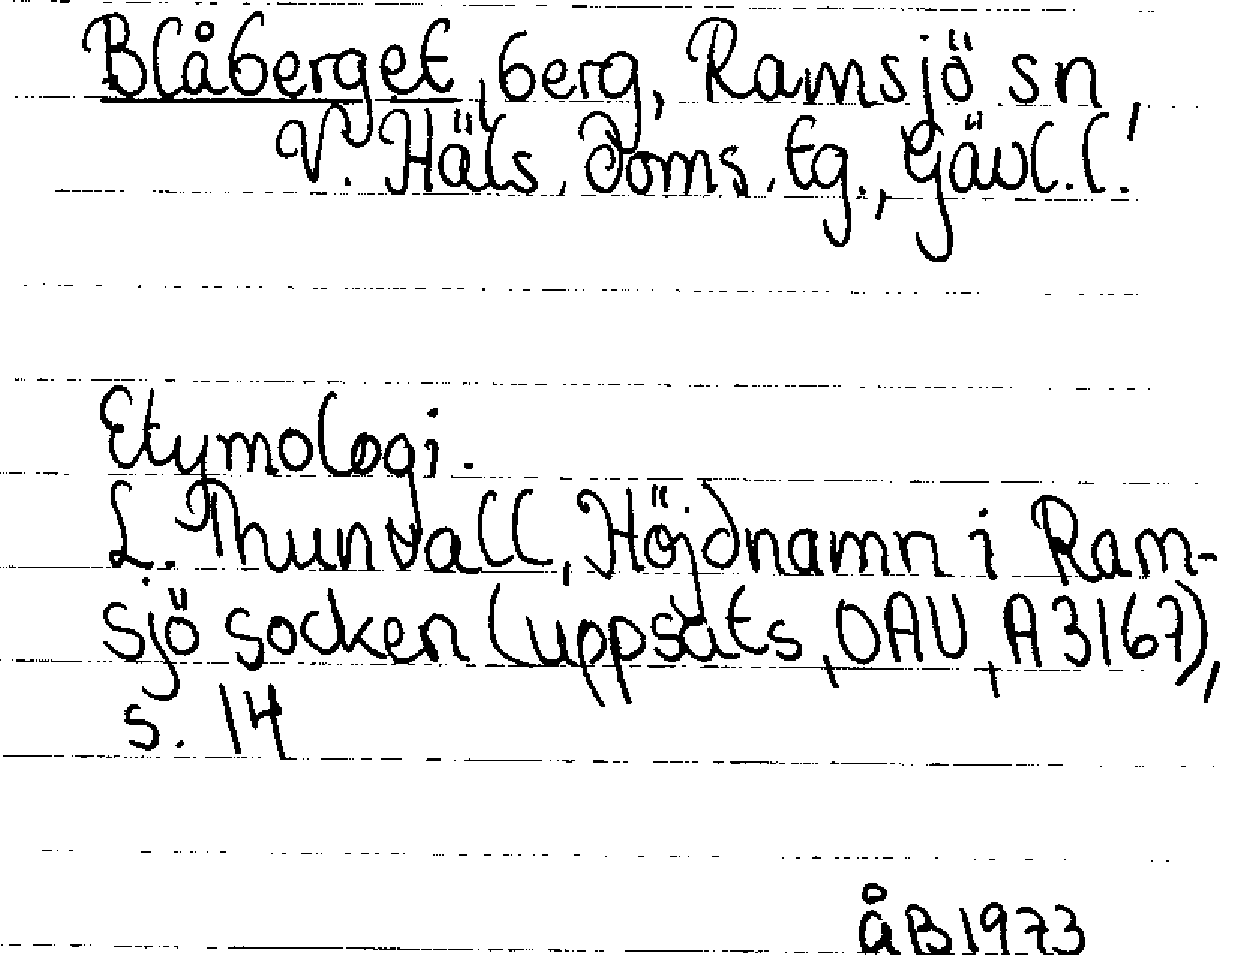 Blåberget, berg, Ramsjö sn,
V. Häls. doms. tg., Gävl.l.
Etymologi.
L. Thunvall, Höjdnamn i Ram-
sjö socken (uppsats, OAU, A3167),
s. 14
åB1973